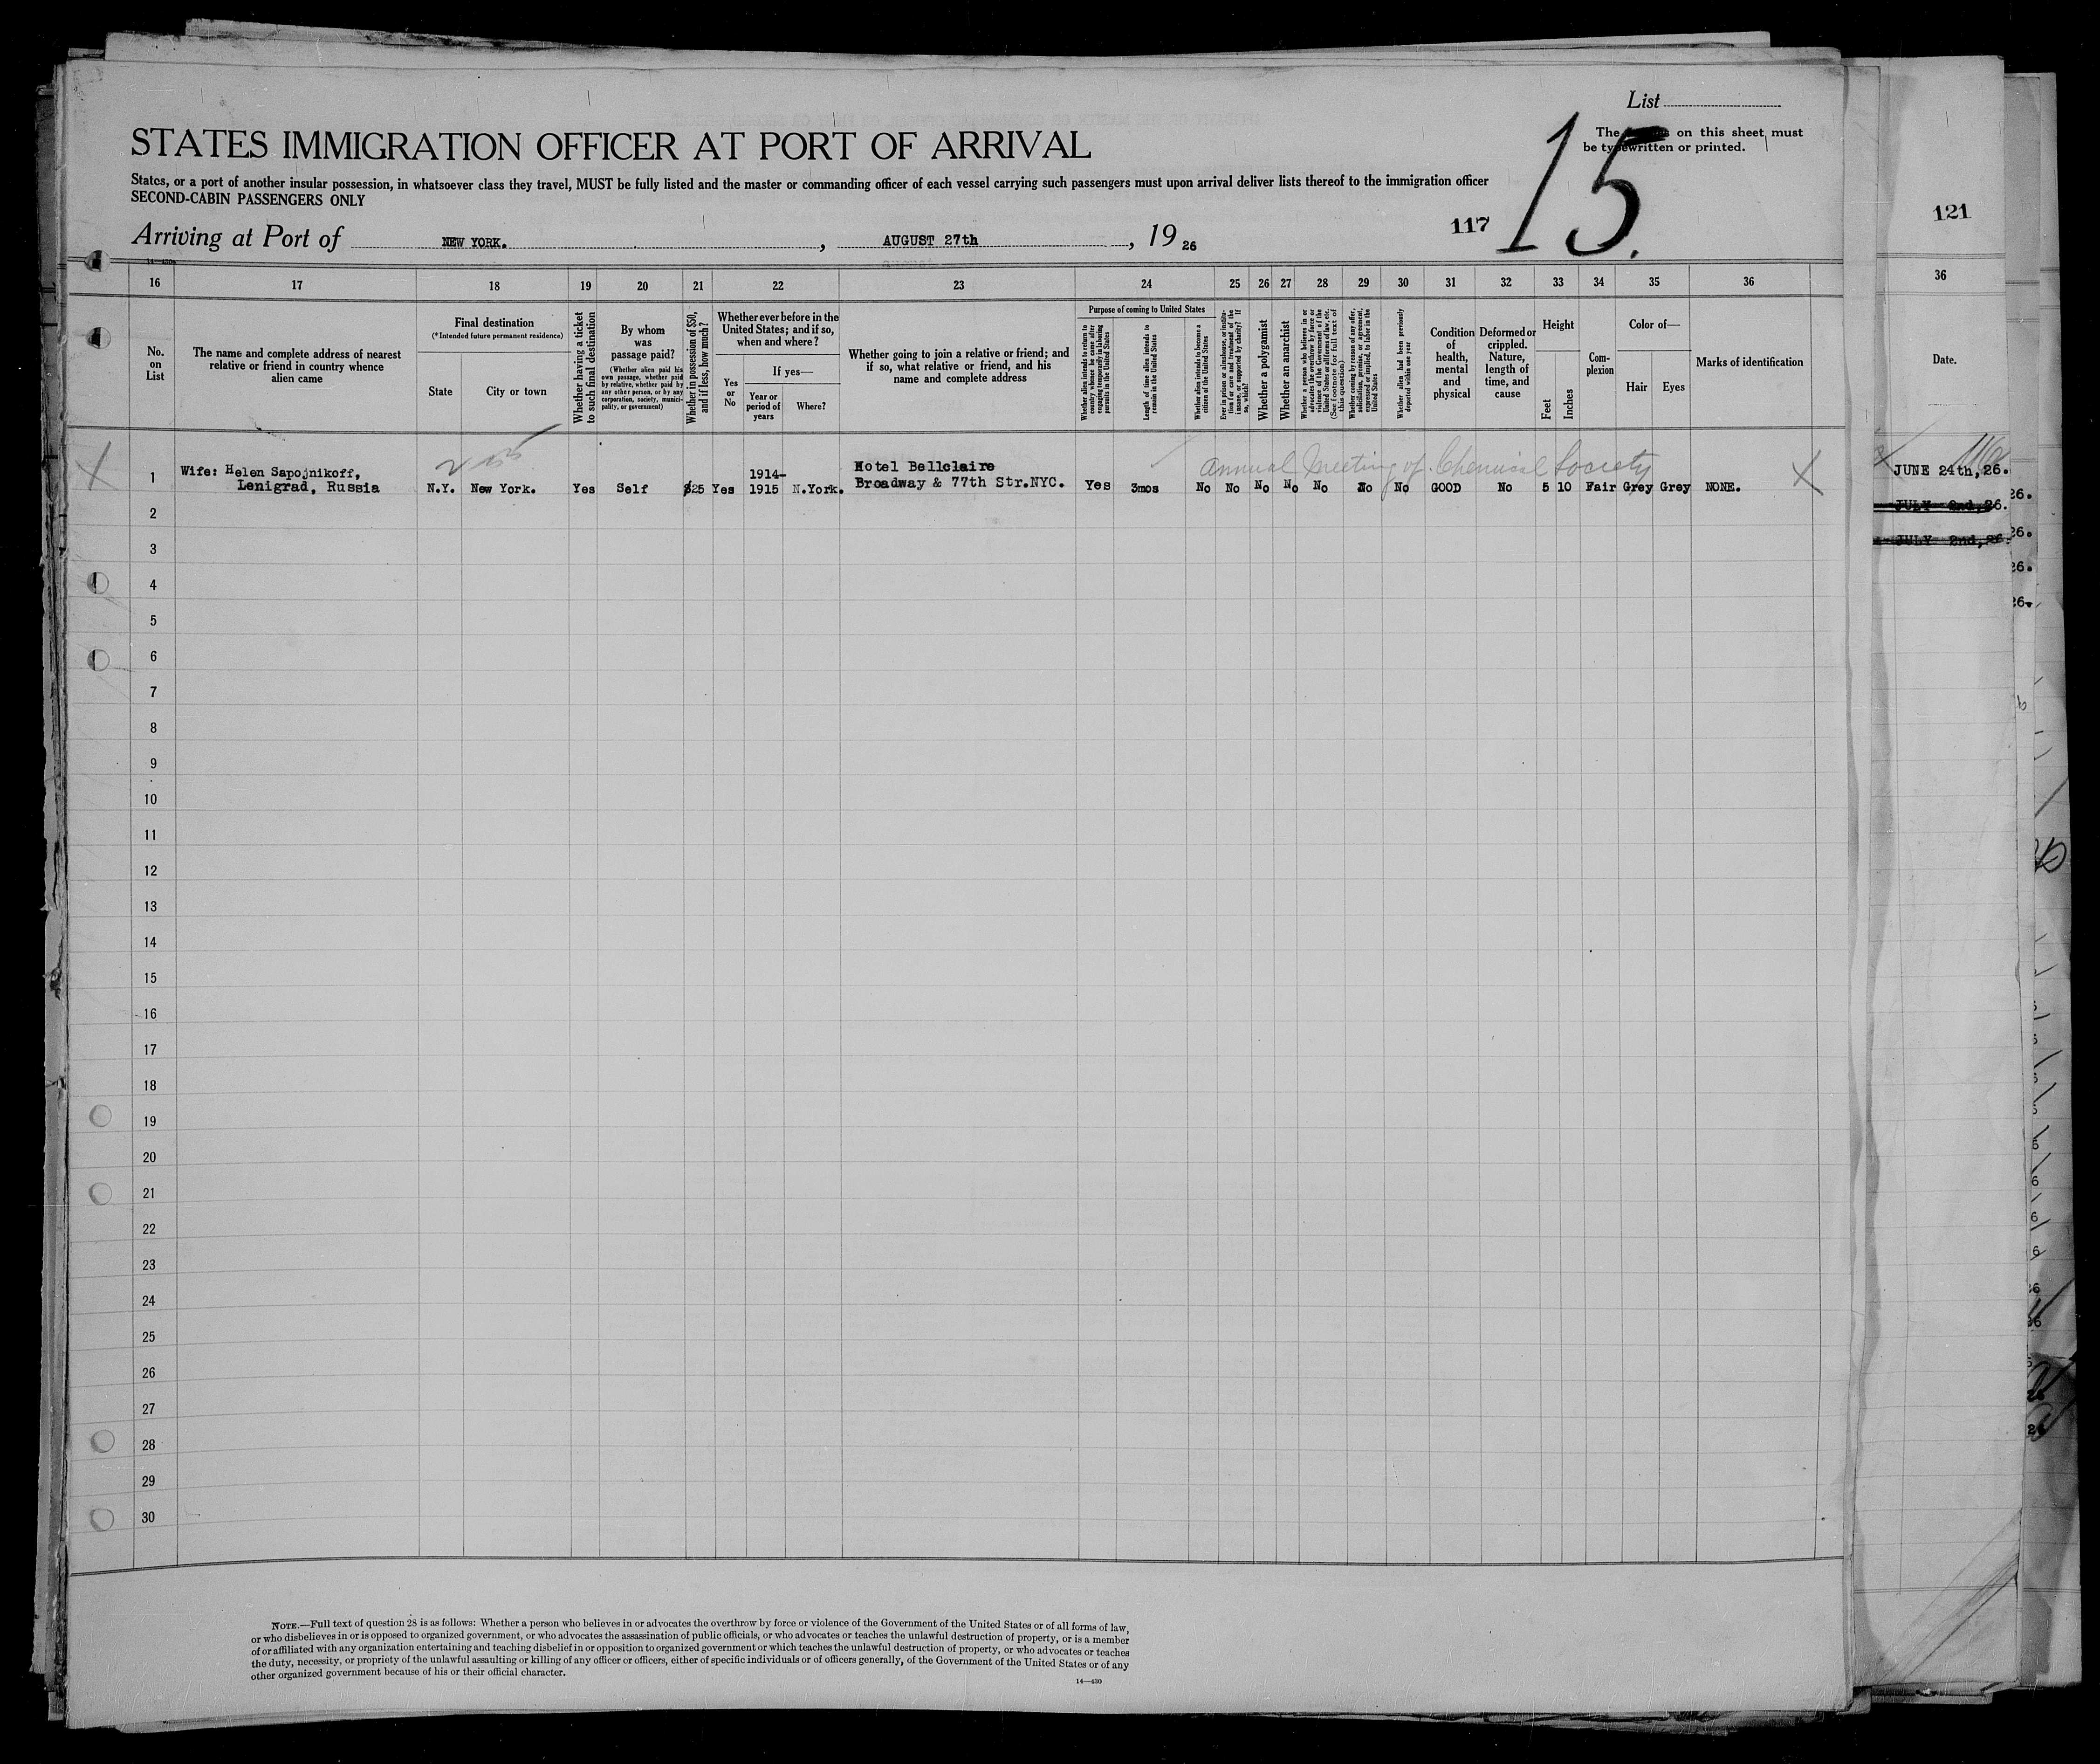 List
The on this sheet must
be typewritten or printed.
15.
STATES IMMIGRATION OFFICER AT PORT OF ARRIVAL
States, or a port of another insular possession, in whatsoever class they travel, MUST be fully listed and the master or commanding officer of each vessel carrying such passengers must upon arrival deliver lists thereof to the immigration officer
SECOND-CABIN PASSENGERS ONLY
117
121
Arriving at Port of NEW YORK. , AUGUST 27th , 19 26
16 17 18 19 20 21 22 23 24 25 26 27 28 29 30 31 32 33 34 35 36
36
No. on List
The name and complete address of nearest
relative or friend in country whence
alien came
Final destination
(*Intended future permanent residence)
State
City or town
Whether having a ticket
to such final destination
By whom
was
passage paid?
(Whether alien paid his
own passage, whether paid
by relative, whether paid by
any other person, or by any
corporation, society, munici-
pality, or government)
Whether in possession of $50,
and if less, how much?
Whether ever before in the
United States; and if so,
when and where?
Yes
or
No
If yes—
Year or
period of
years
Where?
Whether going to join a relative or friend; and
if so, what relative or friend, and his
name and complete address
Purpose of coming to United States
Whether alien intends to return to
country whence he came after
engaging temporarily in laboring
pursuits in the United States
Length of time alien intends to
remain in the United States
Whether alien intends to become a
citizen of the United States
Ever in prison or almshouse, or institu-
tion for care and treatment of the
insane, or supported by charity? If
so, which?
Whether a polygamist
Whether an anarchist
Whether a person who believes in or
advocates the overthrow by force or
violence of the Government of the
United States or all forms of law, etc.
(See footnote for full text of
this question)
Whether coming by reason of any offer,
solicitation, promise, or agreement,
expressed or implied, to labor in the
United States
Whether alien had been previously
deported within one year
Condition
of
health,
mental
and
physical
Deformed or
crippled.
Nature,
length of
time, and
cause
Height
Feet
Inches
Com-
plexion
Color of—
Hair
Eyes
Marks of identification
Date.
Annual Meeting of Chemical Society
1 Wife: Helen Sapojnikoff,
Lenigrad, Russia
N.Y. New York. Yes Self $25 Yes 1914-
1915 N.York.
Hotel Bellclaire
Broadway & 77th Str.NYC.
Yes 3mos No No No No No No No GOOD No 5 10 Fair Grey Grey NONE.
JUNE 24th, 26.
JULY 2nd, 26.
JULY 2nd, 26.
26.
26.
26.
26.
2
3
4
5
6
7
8
9
10
11
12
13
14
15
16
17
18
19
20
21
22
23
24
25
26
27
28
29
30
NOTE.—Full text of question 28 is as follows: Whether a person who believes in or advocates the overthrow by force or violence of the Government of the United States or of all forms of law,
or who disbelieves in or is opposed to organized government, or who advocates the assassination of public officials, or who advocates or teaches the unlawful destruction of property, or is a member
of or affiliated with any organization entertaining and teaching disbelief in or opposition to organized government or which teaches the unlawful destruction of property, or who advocates or teaches
the duty, necessity, or propriety of the unlawful assaulting or killing of any officer or officers, either of specific individuals or of officers generally, of the Government of the United States or of any
other organized government because of his or their official character.
14—430